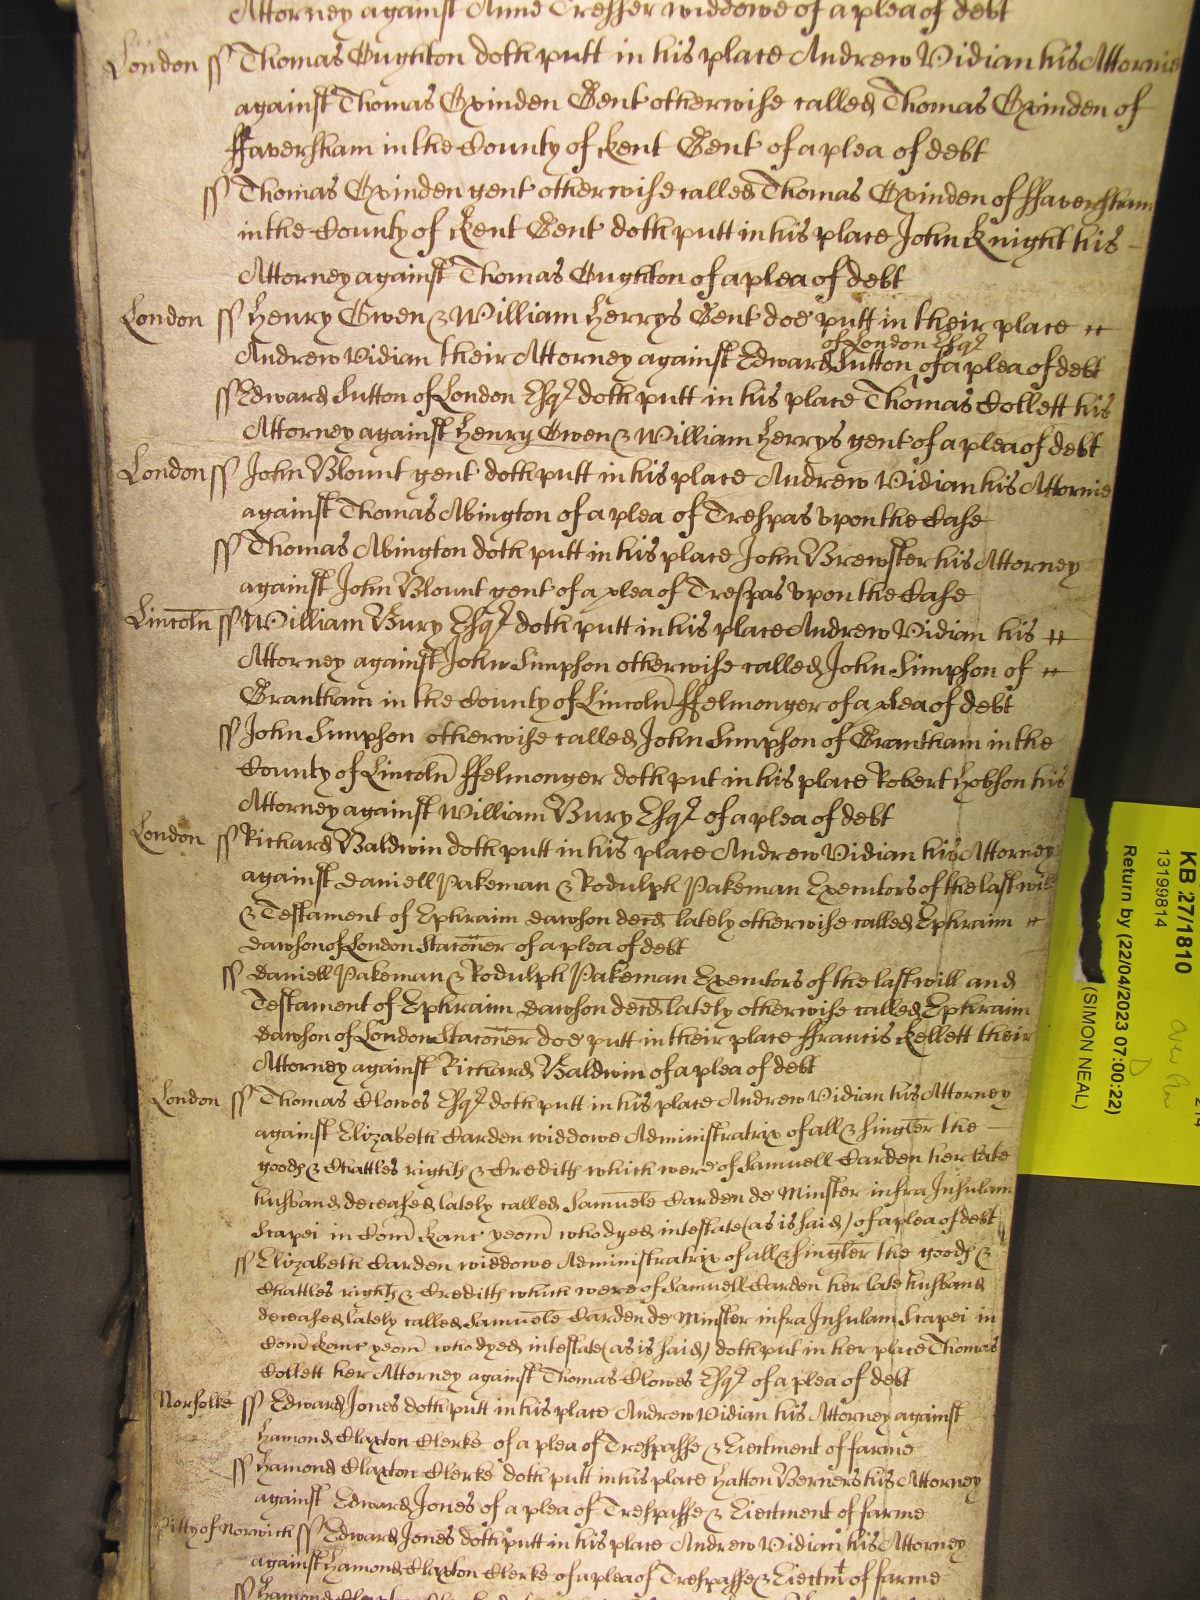 Attorney against Anne Tresser widdowe of a plea of debt
London ss Thomas Oughton doth putt in his place Andrew Vidian his Attornie
against Thomas Oxinden Gent otherwise called Thomas Oxinden of
ffaversham in the County of Kent Gent of a plea of debt
ss Thomas Oxinden gent otherwise called Thomas Oxinden of ffaversham
in the County of Kent Gent doth putt in his place John Knight his
Attorney against Thomas Oughton of a plea of debt
London ss Henry Owen & William Herrys Gent doe putt in their place
of London Esqr
Andrew Vidian their Attorney against Edward Sutton of a plea of debt
ss Edward Sutton of London Esqr doth putt in his place Thomas Collett his
Attorney against Henry Owen & William Herrys gent of a plea of debt
London ss John Blount gent doth putt in his place Andrew Vidian his Attornie
against Thomas Abington of a plea of Trespas vpon the Case
ss Thomas Abington doth putt in his place John Brewster his Attorney
against John Blount gent of a plea of Trespas vpon the Case
Lincoln ss William Bury Esqr doth putt in his place Andrew Vidian his
Attorney against John Simpson otherwise called John Simpson of
Grantham in the County of Lincoln ffelmonger of a plea of debt
ss John Simpson otherwise called John Simpson of Grantham in the
County of Lincoln ffelmonger doth put in his place Robert Hobson his
Attorney against William Bury Esqr of a plea of debt
London ss Richard Baldwin doth putt in his place Andrew Vidian his Attorney
against Daniell Pakeman & Rodulph Pakeman Executors of the last will
& Testament of Ephraim Dawson decd lately otherwise called Ephraim
Dawson of London Staconer of a plea of debt
ss Daniell Pakeman & Rodulph Pakeman Executors of the last will and
Testament of Ephraim Dawson decd lately otherwise called Ephraim
Dawson of London Staconer doe putt in their place ffrancis Kellett their
Attorney against Richard Baldwin of a plea of debt
London ss Thomas Clowes Esqr doth putt in his place Andrew Vidian his Attorney
against Elizabeth Carden widdowe Administratrix of all & singler the
goods & Chattles rights & Creditts which were of Samuell Carden her late
husband deceased lately called Samuele Carden de Minster infra Insulam
Scapei in Com Kanc yeom who dyed intestate (as is said) of a plea of debt
ss Elizabeth Carden widdowe Administratrix of all & singler the goods &
Chattles rights & Creditts which were of Samuell Carden her late husband
deceased lately called Samuele Carden de Minster infra Insulam Scapei in
Com Kanc yeom who dyed intestate (as is said) doth put in her place Thomas
Collett her Attorney against Thomas Clowes Esqr of a plea of debt
Norfolke ss Edward Jones doth putt in his place Andrew Vidian his Attorney against
Hamond Claxton Clerke of a plea of Trespasse & Eiectment of farme
ss Hamond Claxton Clerke doth putt in his place Hatton Berners his Attorney
against Edward Jones of a plea of Trespasse & Eiectment of farme
Citty of Norwich ss Edward Jones doth putt in his place Andrew Vidian his Attorney
against Hamond Claxton Clerke of a plea of Trespasse & Eiectmt of farme
ss Hamond Claxton Clerke
KB 27/1810
13199814
Return by (22/04/2023 07:00:22)
(SIMON NEAL)